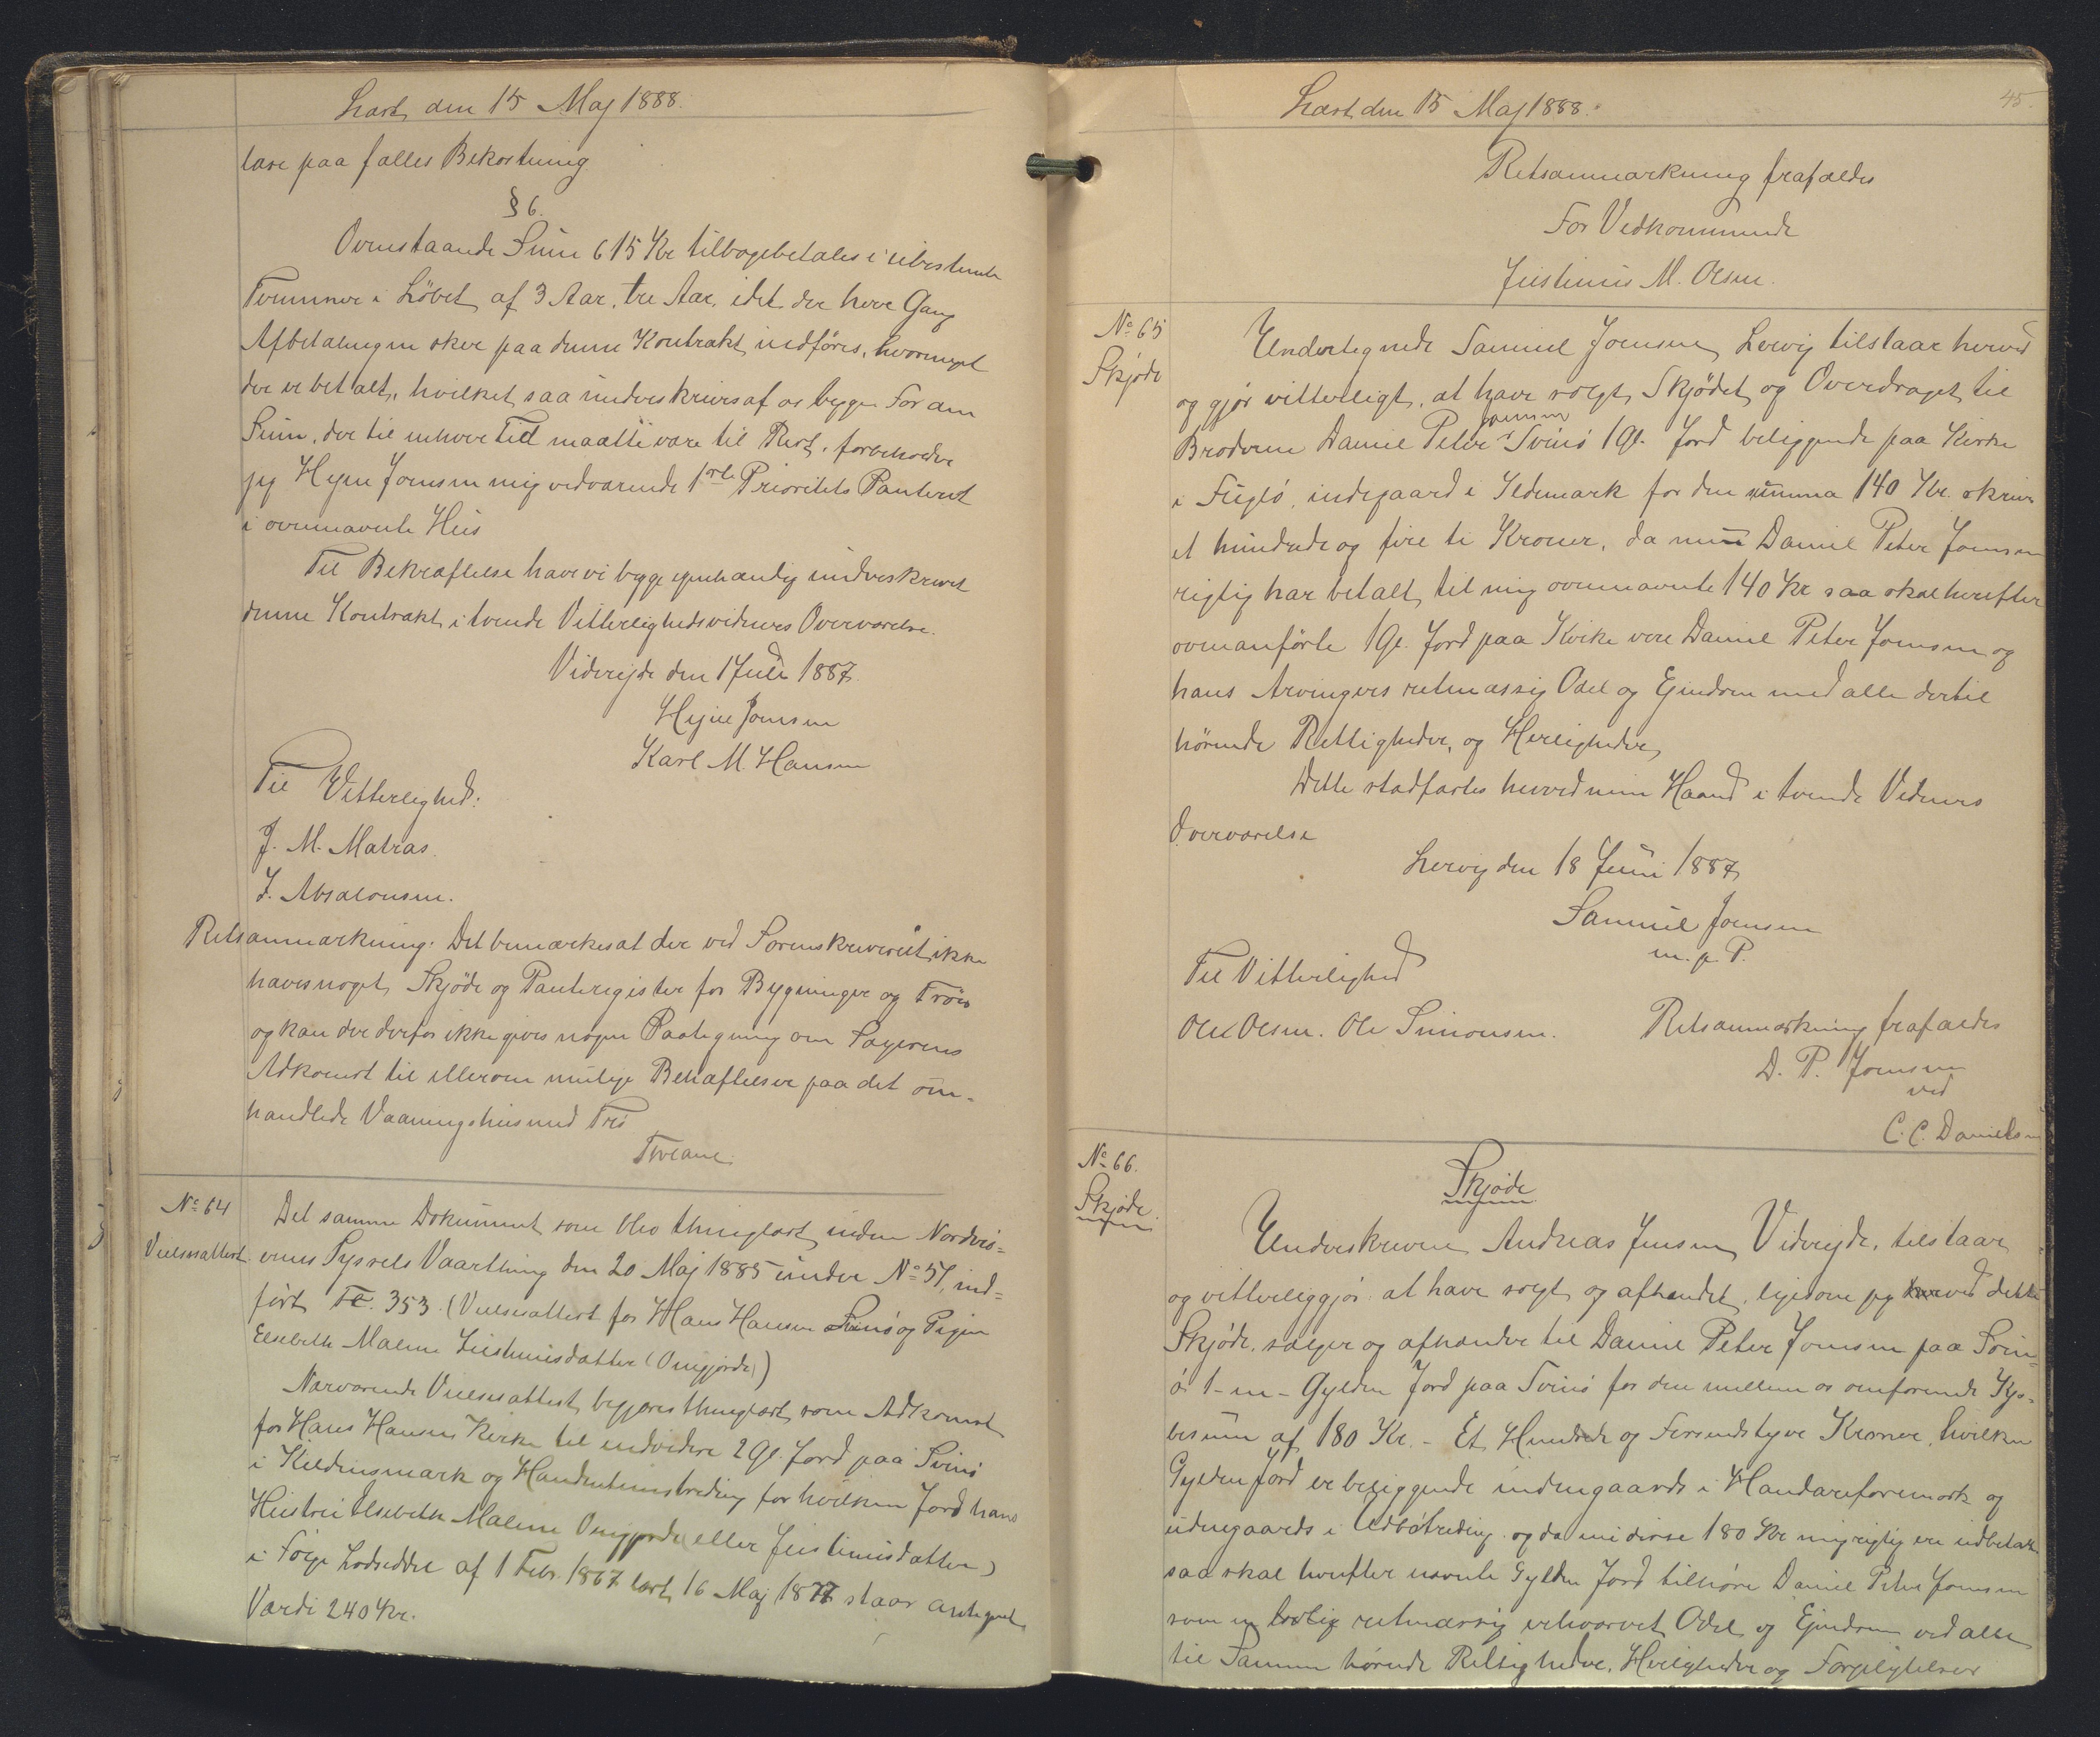 Læst den 15 Maj 1888.
lære paa fælles Bekostning.
§ 6.
Ovenstaaende Sum 615 Kr tilbagebetales i ubestemte
Terminer i Løbet af 3 Aar, tre Aar, idet der hver Gang
Afbetalingen sker paa denne Kontrakt indføres, hvormeget
der er betalt, hvilket saa underskrives af os begge. For den
Sum, der til enhver Tid maatte være til Rest, forbeholder
jeg Hejne Joensen mig vedvarende 1ste Prioritets Panteret
i ovennævnte Hus
Til Bekræftelse have vi begge egenhændig underskrevet
denne Kontrakt i tvende Vitterlighedsvidners Overværelse.
Viderejde den 1 Juli 1887.
Hejne Joensen
Karl M. Hansen
Til Vitterlighed:
J. M. Matras.
J. Absalonsen.
Retsanmærkning: Det bemærkes at der ved Sorenskriveriet ikke
haves noget Skjøde og Panteregister for Bygninger og Tröer
og kan der derfor ikke gives nogen Paategning om Sagerens
Adkomst til eller om mulige Behæftelser paa det om-
handlede Vaaningshus med Trö
Tveane.
No 64
Vielsesattest.
Det samme Dokument som blev thinglæst inden Nordrø-
ernes Syssels Vaarthing den 20 Maj 1885 under No 57, ind-
ført Fol. 353. (Vielsesattest for Hans Hansen Svinø og Pigen
Elsebeth Malene Justinusdatter (Omgjorde))
Nærværende Vielsesattest begjæres thinglæst som Adkomst
for Hans Hansen Kirke til endvidere 2 Gl. Jord paa Svinø
i Kildensmark og for hvilken Jord hans
Hustru Elsebeth Malene Omgjorde (eller Justinusdatter)
i Følge Lodseddel af 1 Febr. 1867 læst 16 Maj 1877 staar antegnet
Værdi 240 Kr.
Læst den 15 Maj 1888.
45.
Retsanmærkning frafaldes
For Vedkommende
Justinus M. Olsen.
No 65
Skjøde
Undertegnede Samuel Joensen, Lervig tilstaar herved
og gjør vitterligt, at have solgt, Skjødet og Overdraget til
Broderen Daniel Peter Joensen Svinø 1 Gl. Jord beliggende paa Kirke
i Fuglø, indegaard i Ydemark for den summa 140 Kr. skriver
et hundrede og fire ti Kroner, da nu Daniel Peter Joensen
rigtig har betalt til mig ovennævnte 140 Kr saa skal herefter
ovenanførte 1 Gl. Jord paa Kirke være Daniel Peter Joensen og
hans Arvingers retmæssig Odel og Ejendom med alle dertil
hørende Rettigheder, og Herligheder,
Dette stadfæstes herved min Haand i tvende Vidners
Overværelse
Lervig den 18 Juni 1887
Samuel Joensen
m. p. P.
Til Vitterlighed
Ole Olsen. Ole Simonsen.
Retsanmærkning frafaldes
D. P. Joensen
ved
C. C. Danielsen
No 66.
Skjøde.
Skjøde
Underskrevne Andreas Jensen, Viderejde, tilstaar
og vitterliggjør at have solgt og afhændet, ligesom jeg herved dette
Skjøde, sælger og afhænder til Daniel Peter Joensen paa Svin-
ø 1 - en - Gylden Jord paa Svinø for den mellem os omforenede Kjø-
besum af 180 Kr. - Et Hundrede og Firsindstyve Kroner, hvilken
Gylden Jord er beliggende indengaards i og
udengaards i og da nu disse 180 Kr mig rigtig ere udbetalte
saa skal herefter nævnte Gylden Jord tilhøre Daniel Peter Joensen
som en lovlig retmæssig erhvervet Odel og Ejendom ved alle
til Samme hørende Rettigheder, Herligheder og Forpligtelser